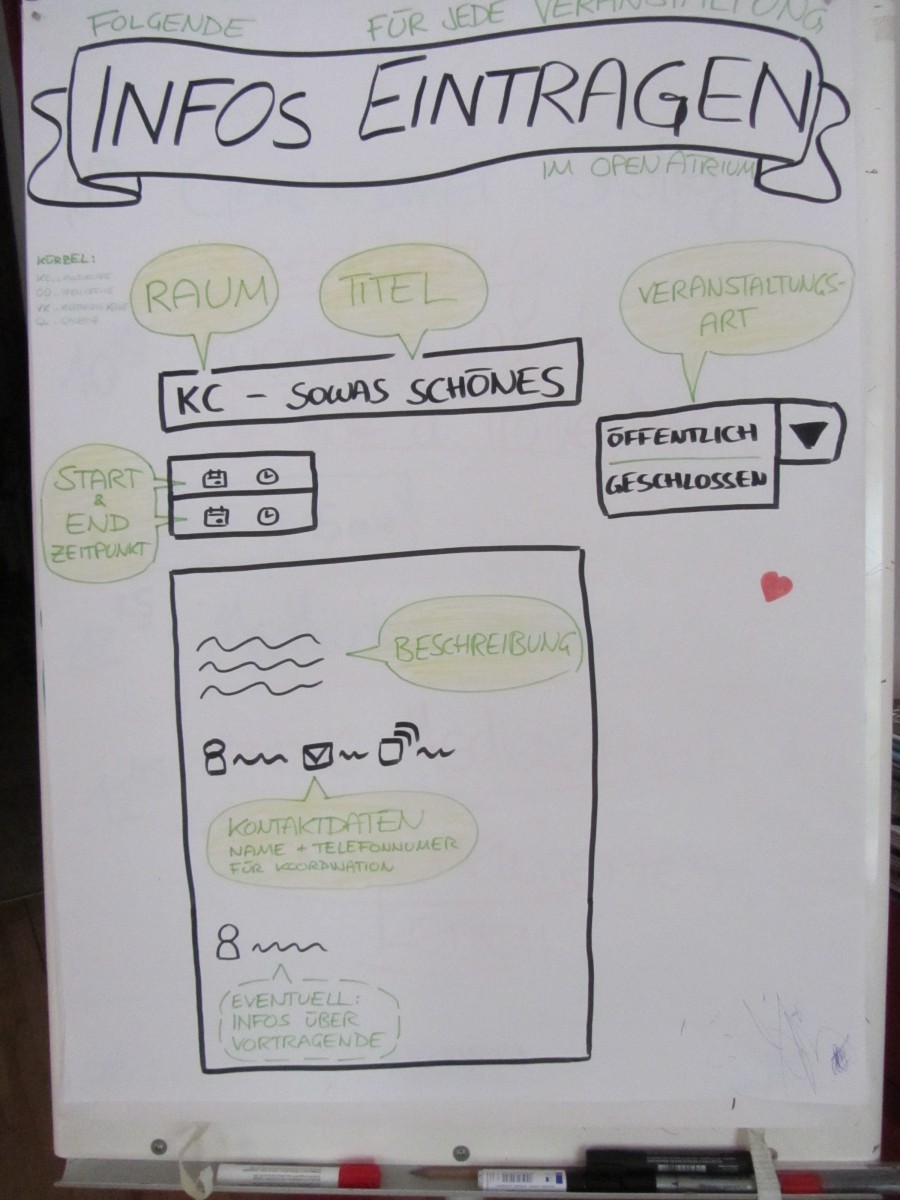 FOLGENDE FÜR JEDE VERANSTALTUNG
INFOS EINTRAGEN
IM OPENATRIUM
KÜRBEL:
RAUM
TITEL
VERANSTALTUNGS-
ART
KC - SOWAS SCHÖNES
ÖFFENTLICH
GESCHLOSSEN
START
&
END
ZEITPUNKT
BESCHREIBUNG
KONTAKTDATEN
NAME + TELEFONNUMER
FÜR KOORDINATION
EVENTUELL:
INFOS ÜBER
VORTRAGENDE